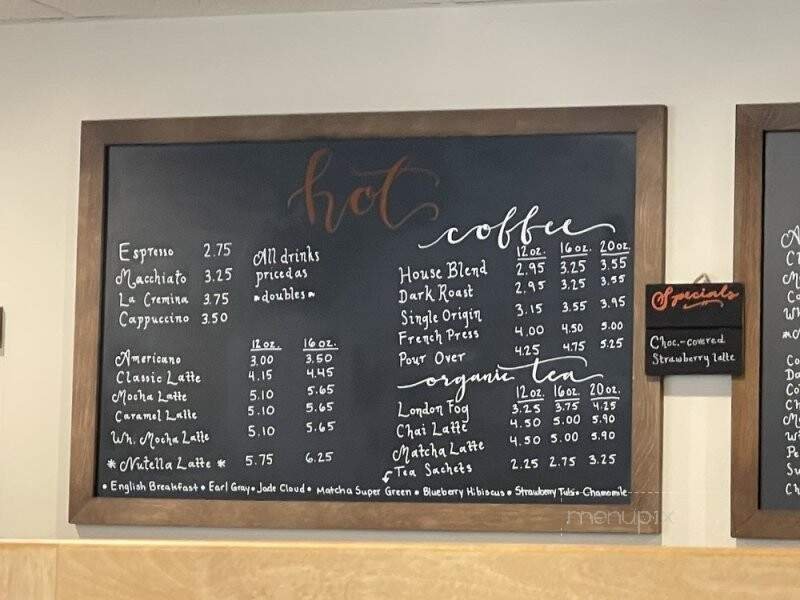 hot
Espresso 2.75
Macchiato 3.25
La Cremina 3.75
Cappuccino 3.50
All drinks
priced as
*doubles*
12 oz. 16 oz.
Americano 3.00 3.50
Classic Latte 4.15 4.45
Mocha Latte 5.10 5.65
Caramel Latte 5.10 5.65
Wh. Mocha Latte 5.10 5.65
* Nutella Latte * 5.75 6.25
coffee
12 oz. 16 oz. 20 oz.
House Blend 2.95 3.25 3.55
Dark Roast 2.95 3.25 3.55
Single Origin 3.15 3.55 3.95
French Press 4.00 4.50 5.00
Pour Over 4.25 4.75 5.25
organic tea
12 oz. 16 oz. 20 oz.
London Fog 3.25 3.75 4.25
Chai Latte 4.50 5.00 5.90
Matcha Latte 4.50 5.00 5.90
Tea Sachets 2.25 2.75 3.25
• English Breakfast • Earl Gray • Jade Cloud • Matcha Super Green • Blueberry Hibiscus • Strawberry Tulsi • Chamomile
Specials
Choc.-covered
Strawberry latte
menupix